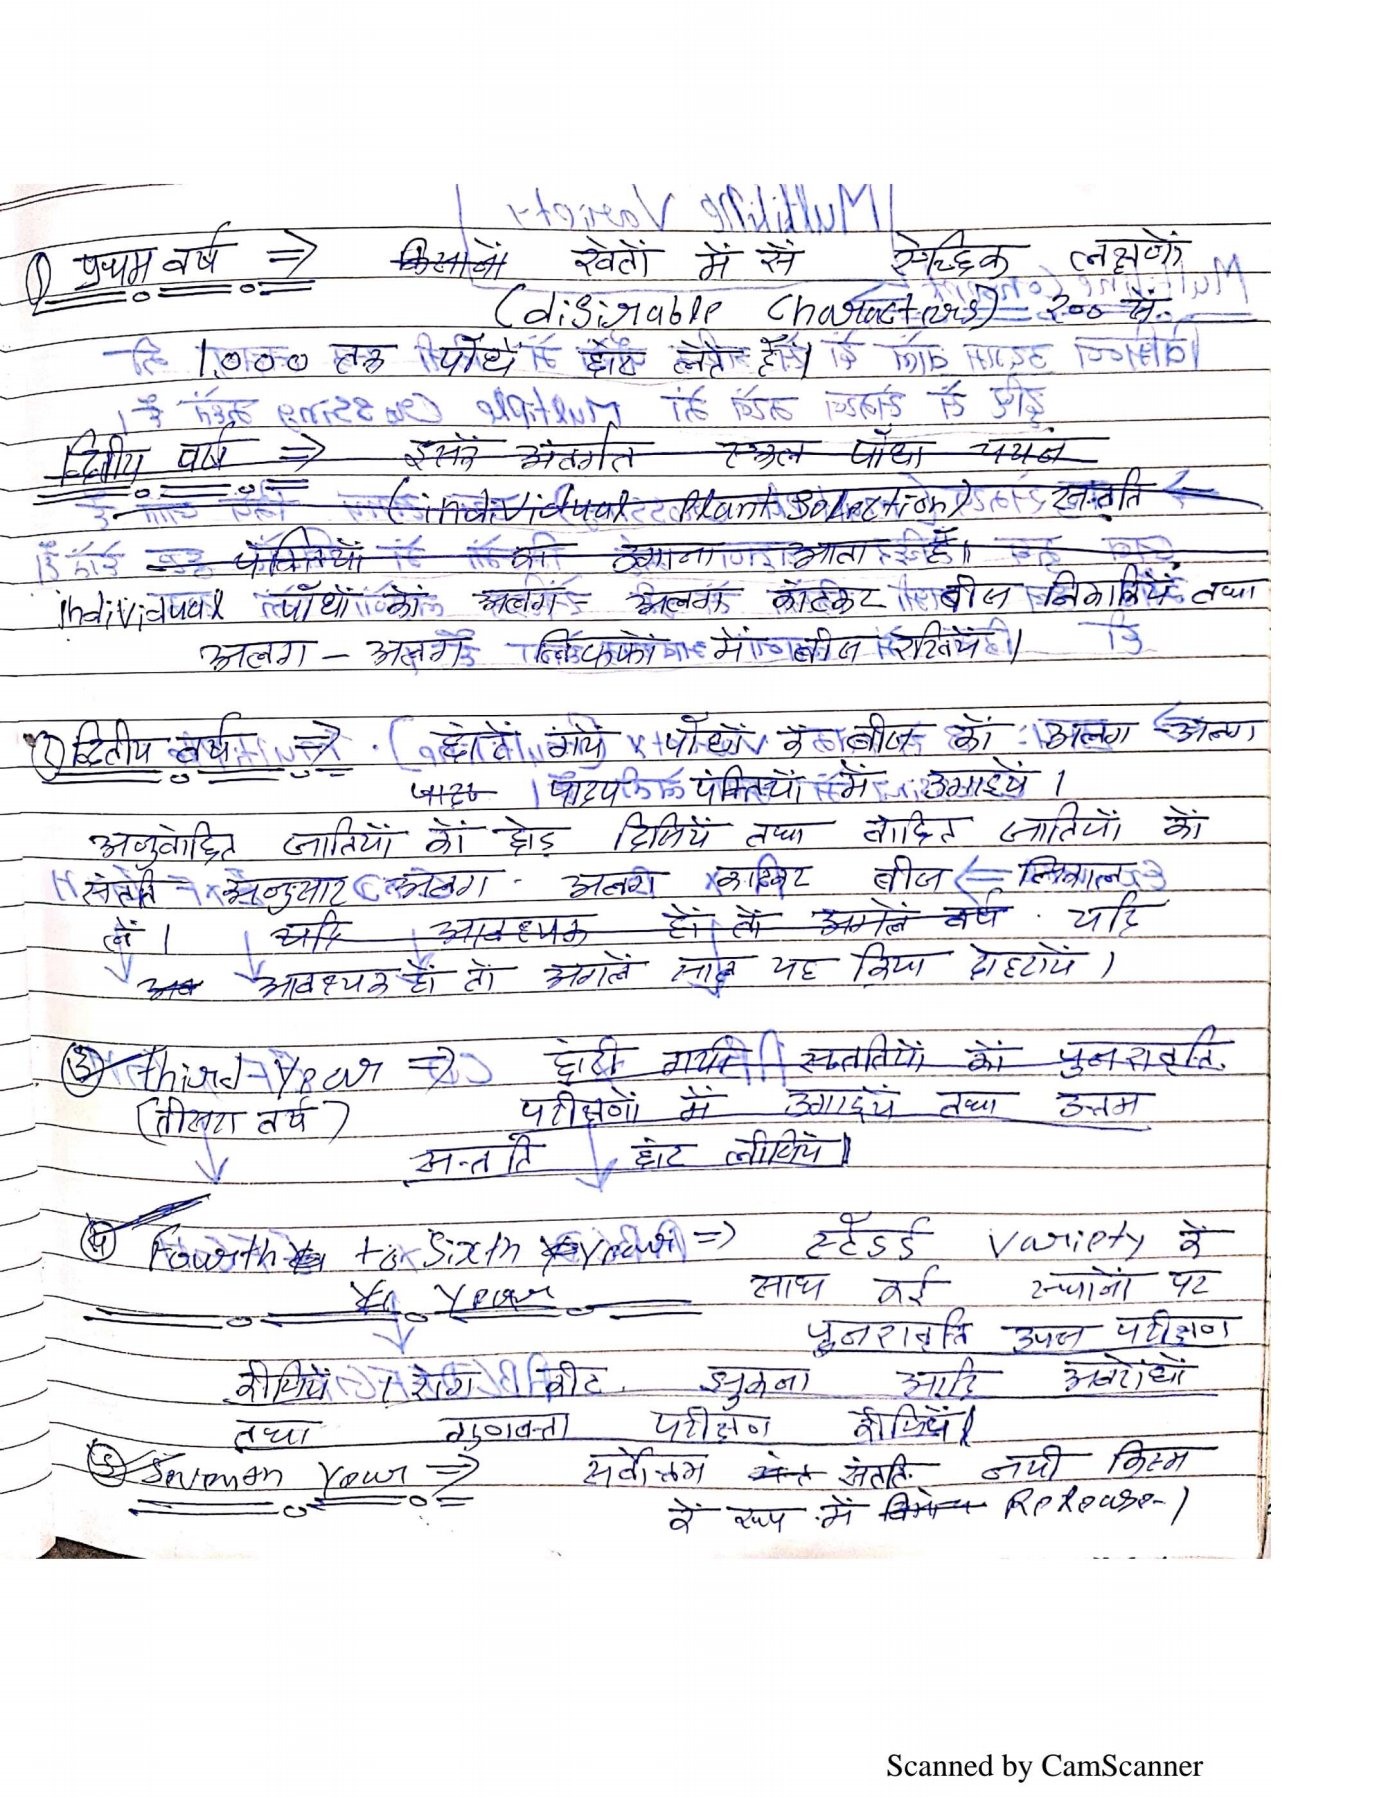 ① प्रथम वर्ष ⇒ किसानों खेतों में सें ऐच्छिक लक्षणों
(disirable Characters) 200 सें.
1,000 तक पौधें छाँट लेते हैं।
द्वितीय वर्ष ⇒ इसके अंतर्गत एकल पौधा चयन
(individual Plant Selection) सन्तति
पंक्तियों का उगाना आता है।
individual पौधों को अलग अलग काटकर बीज निकालियें तथा
अलग - अलग लिफाफों में बीज रखियें।
② द्वितीय वर्ष ⇒ छांटें गयें पौधों के बीज कों अलग - अलग
पादप पंक्तियों में उगाइयें।
अनुवांछित जातियों कों छोड़ दिजियें तथा वांछित जातियों कों
संतति - अनुसार अलग - अलग काटकर बीज निकाल
लें। यदि आवश्यक हों तों अगलें वर्ष यदि
अब आवश्यक हों तों अगलें साल यह क्रिया दोहरायें।
③ third - Year ⇒ छांटी गयी सन्ततियों कों पुनरावृति
(तीसरा वर्ष) परीक्षणों में उगाइयें तथा उत्तम
सन्तति छांट लीजियें।
④ Fourth to Sixth year ⇒ स्टैंडर्ड variety कें
Year साथ कई स्थानों पर
पुनरावृति उपज परीक्षण
कीजियें। रोग कीट झुकना आदि अवरोधों
तथा गुणवत्ता परीक्षण कीजियें।
⑤ Sevenen Year ⇒ सर्वोत्तम संतति नयी किस्म
कें रूप में Release-।
Scanned by CamScanner